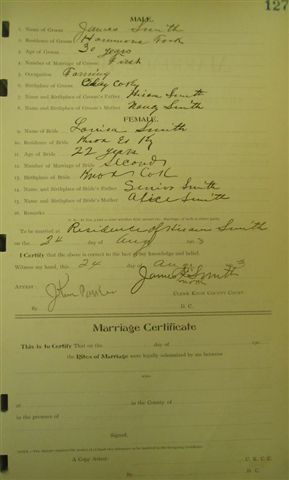 127
MALE.
1. Name of Groom James Smith
2. Residence of Groom Hammons Fork
3. Age of Groom 30 years
4. Number of Marriage of Groom First
5. Occupation Farming
6. Birthplace of Groom Clay Co Ky
7. Name and Birthplace of Groom's Father Hiram Smith
8. Name and Birthplace of Groom's Mother Nancy Smith
FEMALE.
9. Name of Bride Louisa Smith
10. Residence of Bride Knox Co Ky
11. Age of Bride 22 years
12. Number of Marriage of Bride Second
13. Birthplace of Bride Knox Co K
14. Name and Birthplace of Bride's Father Smith
15. Name and Birthplace of Bride's Mother Alice Smith
16. Remarks
To be married at Residence of Hiram Smith
on the 24 day of Aug 3
I Certify that the above is correct to the best of my knowledge and belief.
Witness my hand, this 24 day of Aug 3
James Smith
Attest:
Clerk Knox County Court
By D. C.
Marriage Certificate
This is to Certify That on the day of 190
the Rites of Marriage were legally solemnized by me between
and
at in the County of
in the presence of
Signed,
A Copy Attest: C. K. C. C.
By D. C.